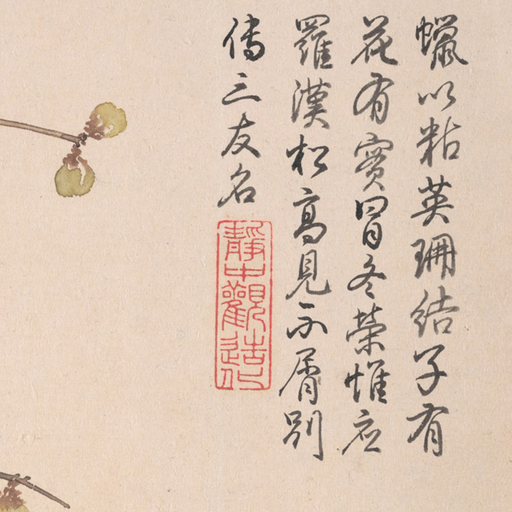 蠟以粘英珊結子有
花有實冒冬榮惟应
羅漢松高見不屑別
傳三友名
靜中觀造化